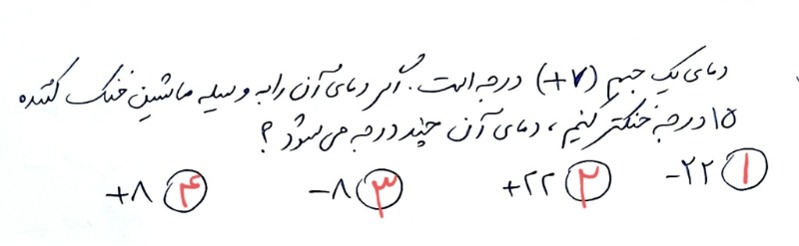 دمای یک جسم (+۷) درجه است. اگر دمای آن را به وسیله ماشین خنک کننده
۱۵ درجه خنکتر کنیم، دمای آن چند درجه می‌شود؟
۱ -۲۲ ۲ +۲۲ ۳ -۸ ۴ +۸